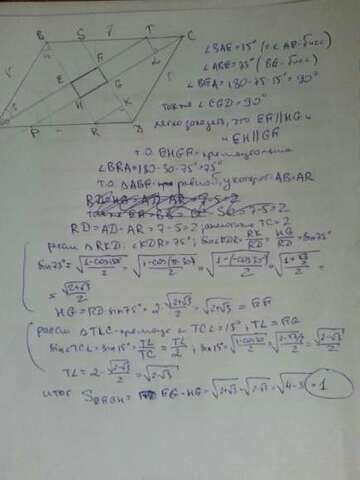 B S 7 T C
F
E
G
H
K
P R D
∠BAE = 15° (т.к AE-бисс)
∠ABE = 75° (BE-бисс)
∠BEA = 180-75-15° = 90°
также ∠CGD = 90°
легко доказать, что EF || HG и
и EH || GF
т.о. EHGF - прямоугольник
∠BRA = 180-30-75 = 75°
т.о. ΔABR - равноб, у которого AB = AR
RD = AD - AR = 7 - 5 = 2, аналогично TC = 2
рассм ΔRKD: ∠KDR = 75°; sin∠KDR = RK/RD = HG/RD = sin75°
sin75° = √(1-cos150°)/2 = √(1-cos(180-30°))/2 = √(1-(-cos30°))/2 = √(1+√3/2)/2 =
= √(2+√3)/2
HG = RD·sin75° = 2·√(2+√3)/2 = √(2+√3) = EF
рассм ΔTLC - прямоуг с TCL = 15°; TL = FG
sin∠TCL = sin15° = TL/TC = TL/2; sin15° = √(1-cos30)/2 = √(1-√3/2)/2 = √(2-√3)/2
TL = 2·√(2-√3)/2 = √(2-√3)
итог S EFGH = FG·HG = √(2+√3)·√(2-√3) = √(4-3) = 1